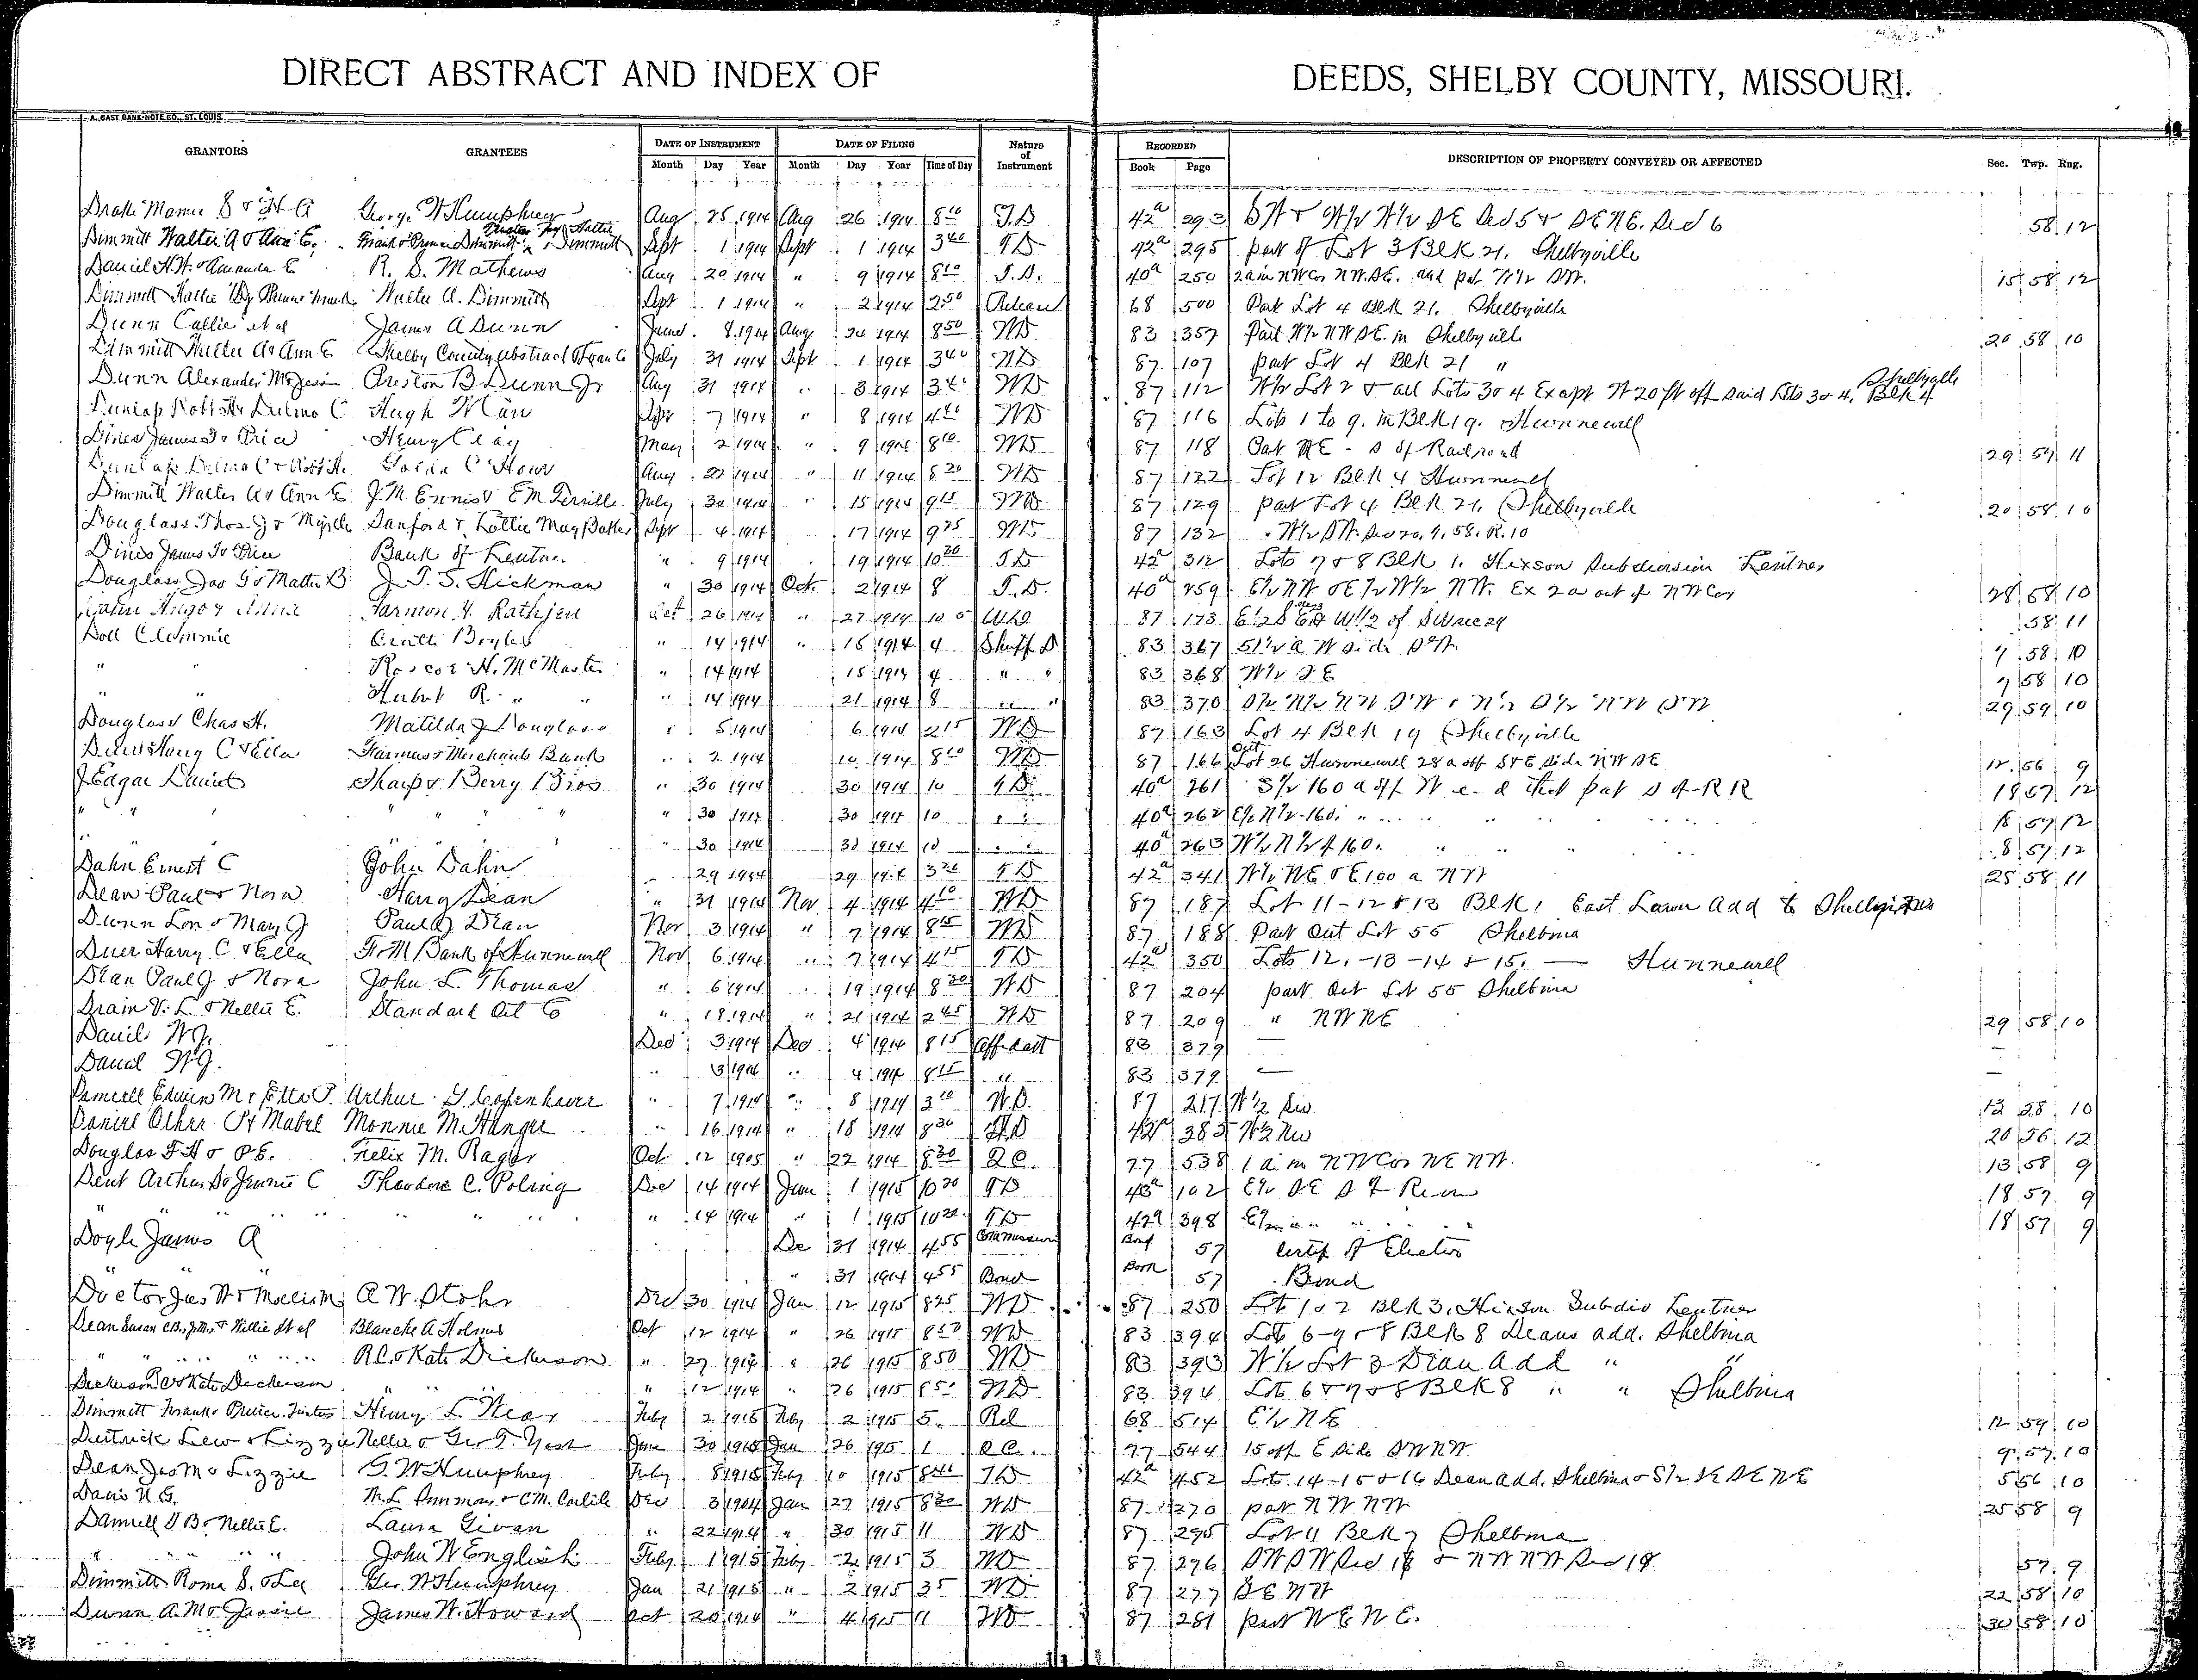 DIRECT ABSTRACT AND INDEX OF DEEDS, SHELBY COUNTY, MISSOURI.
A. GAST BANK-NOTE CO., ST. LOUIS.
GRANTORS GRANTEES DATE OF INSTRUMENT DATE OF FILING Nature of Instrument RECORDED DESCRIPTION OF PROPERTY CONVEYED OR AFFECTED Sec. Twp. Rng.
Month Day Year Month Day Year Time of Day Book Page
Drake Mamie S & H A George W Humphrey Aug 25 1914 Aug 26 1914 8 10 T.D 42a 293 58 12
Dimmitt Walter A & Ann E. Sept 1 1914 Sept 1 1914 3 40 TD 42a 295 part of Lot 3 Blk 21. Shelbyville
Daniel H.W. & Amanda E R. S. Mathews Aug 20 1914 " 9 1914 8 10 T.D. 40a 250 2a in NW Cor NW.SE. and pt W½ SW. 15 58 12
Dimmitt Hattie By Walter A. Dimmitt Sept 1 1914 " 2 1914 2 50 Release 68 500 Part Lot 4 Blk 21. Shelbyville
Dunn Callie et al James A Dunn June 8 1914 Aug 24 1914 8 50 WD 83 357 Part W½ NW SE in Shelbyville 20 58 10
Dimmitt Walter A & Ann E Shelby County Abstract & Loan Co July 31 1914 Sept 1 1914 3 40 WD 87 107 part Lot 4 Blk 21 "
Dunn Alexander M & Jessie Preston B Dunn Jr Aug 31 1914 " 3 1914 WD 87 112 W½ Lot 2 & all Lots 3 & 4 Except W 20 ft off said Lots 3 & 4. Blk 4 Shelbyville
Dunlap Robt H & Delma C Hugh Sept 7 1914 " 8 1914 4 40 WD 87 116 Lots 1 to 9. in Blk 19. Hunnewell
Dines James & Price Henry Clay May 2 1914 " 9 1914 8 10 WD 87 118 Part NE - S of Railroad 29 57 11
Dunlap Delma C & Robt H. Goldie C Howe Aug 22 1914 " 11 1914 8 20 WD 87 122 Lot 12 Blk 4 Hunnewell
Dimmitt Walter A & Ann E J.M. Ennis & E M Terrill July 30 1914 " 15 1914 9 15 WD 87 129 part Lot 4 Blk 21, Shelbyville 20 58 10
Douglass Thos J & Myrtle Sanford & Lottie May Baker Sept 4 1914 17 1914 9 25 WD 87 132 W½ SW. Sec 20, T, 58. R. 10
Dines James & Price Bank of Lentner " 9 1914 19 1914 10 20 TD 42a 312 Lots 7 & 8 Blk 1. Hixson Subdivision Lentner
Douglass Jas G & Mattie B J. T. S. Hickman " 30 1914 Oct. 2 1914 8 T.D. 40a 259 E½ NW & E½ W½ NW. Ex 2 a out of NW Cor 28 58 10
Dahn Hugo & Anna Harmon H. Rathjen Oct 26 1914 " 27 1914 10 5 WD 87 173 58 11
Doll Clemmie Boyles " 14 1914 " 15 1914 4 Sheriff D 83 367 51½ a W side SW 7 58 10
" " Roscoe H. McMaster " 14 1914 15 1914 4 " " 83 368 W½ SE 7 58 10
" " Hubert R. " " " 14 1914 21 1914 8 " " 83 370 29 59 10
Douglass Chas H. Matilda J Douglass " 5 1914 6 1914 2 15 WD 87 163 Lot 4 Blk 19 Shelbyville
Duer Harry C & Ella Farmers & Merchants Bank " 2 1914 10 1914 8 10 WD 87 166 Out Lot 26 Hunnewell 28 a off S & E side NW SE 12 56 9
J Edgar Daniel Sharp & Berry Bros " 30 1914 30 1914 10 TD 40a 261 S½ 160 a off W e. & that part S of RR 18 57 12
" " " " " " " 30 1914 30 1914 10 " " 40a 262 E½ N½-160. " " " " 18 57 12
" " " " " 30 1914 30 1914 10 " " 40a 263 W½ N½ of 160. " " " 8 57 12
Dahn Ernest C John Dahn 29 1914 29 1914 3 20 TD 42a 341 W½ NE & E 100 a NW 25 58 11
Dean Paul & Nora Harry Dean " 31 1914 Nov. 4 1914 4 10 WD 87 187 Lot 11-12 & 13 Blk 1 East Lawn Add to
Dunn Lon & Mary J Paul J Dean Nov 3 1914 " 7 1914 8 15 WD 87 188 Part Out Lot 55 Shelbina
Duer Harry C & Ella F & M Bank of Hunnewell Nov 6 1914 " 7 1914 4 15 TD 42a 350 Lots 12,-13-14 & 15. — Hunnewell
Dean Paul J & Nora John L. Thomas " 6 1914 19 1914 8 30 WD 87 204 part Out Lot 55 Shelbina
Drain V. L. & Nellie E. Standard Oil Co " 18 1914 " 21 1914 2 45 WD 87 209 " NW NE 29 58 10
Daniel W.J. Dec 3 1914 Dec 4 1914 8 15 Affidavit 83 379 —
Daniel W.J. " 3 1914 " 4 1914 8 15 " 83 379 —
Damrell Edwin M & Etta P. Arthur G Copenhaver " 7 1914 " 8 1914 3 10 W.D. 87 217 W½ Sw 13 58 10
Daniel Other P & Mabel Monnie M. Hanger " 16 1914 " 18 1914 8 30 TD 42a 385 W½ Nw 20 56 12
Douglas F H & P E. Felix M. Rager Oct 12 1905 " 22 1914 8 30 Q C. 77 538 1 a in NW Cor NE NW. 13 58 9
Dent Arthur D & Jennie C Theodore C. Poling Dec 14 1914 Jan 1 1915 10 20 TD 43a 102 E½ SE S of River 18 57 9
" " " " " " " " " 14 1914 " 1 1915 10 20 TD 42a 398 E½ " " " " 18 57 9
Doyle James A De 31 1914 4 55 Commission Bond 57 Certif of Election
" " " 31 1914 4 55 Bond Book 57 Bond
Doctor Jas W & A W. Stohr Dec 30 1914 Jan 12 1915 8 25 WD 87 250 Lots 1 & 2 Blk 3, Hixson Subdiv Lentner
Dean Susan C B, J M, & Willie et al Blanche A Holmes Oct 12 1914 " 26 1915 8 50 WD 83 394 Lots 6-7 & 8 Blk 8 Deans add. Shelbina
" " " " " R.C. & Kate Dickerson " 27 1914 " 26 1915 8 50 WD 83 393 W½ Lot 3 Dean Add " "
Dickerson R C & Kate Dickerson " " " 12 1914 " 26 1915 8 50 WD 83 394 Lots 6 & 7 & 8 Blk 8 " " Shelbina
Dimmitt Frank & Prince Trustees Henry L Feby 2 1915 Feby 2 1915 5. Rel 68 514 E½ NE 12 59 10
Dietrick Lew & Lizzie Nellie & Geo T. Yost June 30 1915 Jan 26 1915 1 Q C. 77 544 15 off E Side SW NW 9 57 10
Dean Jas M & Lizzie G. W Humphrey Feby 8 1915 Feby 10 1915 8 40 T.D 42a 452 Lots 14-15 & 16 Dean add. Shelbina & 5 56 10
Davis N G. M. L. & C M. Carlile Dec 3 1904 Jan 27 1915 8 30 WD 87 270 part NW NW 25 58 9
Damrell J B & Nellie E. Laura Givan " 22 1914 " 30 1915 11 WD 87 295 Lot 11 Blk 7 Shelbina
" " " " John W English Feby 1 1915 Feby 2 1915 3 WD 87 276 SW SW Sec 18 & NW NW Sec 18 57 9
Dimmitt Roma S. & Lee Geo. W Humphrey Jan 21 1915 " 2 1915 35 WD 87 277 SE NW 22 58 10
Dunn A. M & Jessie James W. Howard Oct 20 1914 " 4 1915 11 WD 87 281 part NE NE. 30 58 10